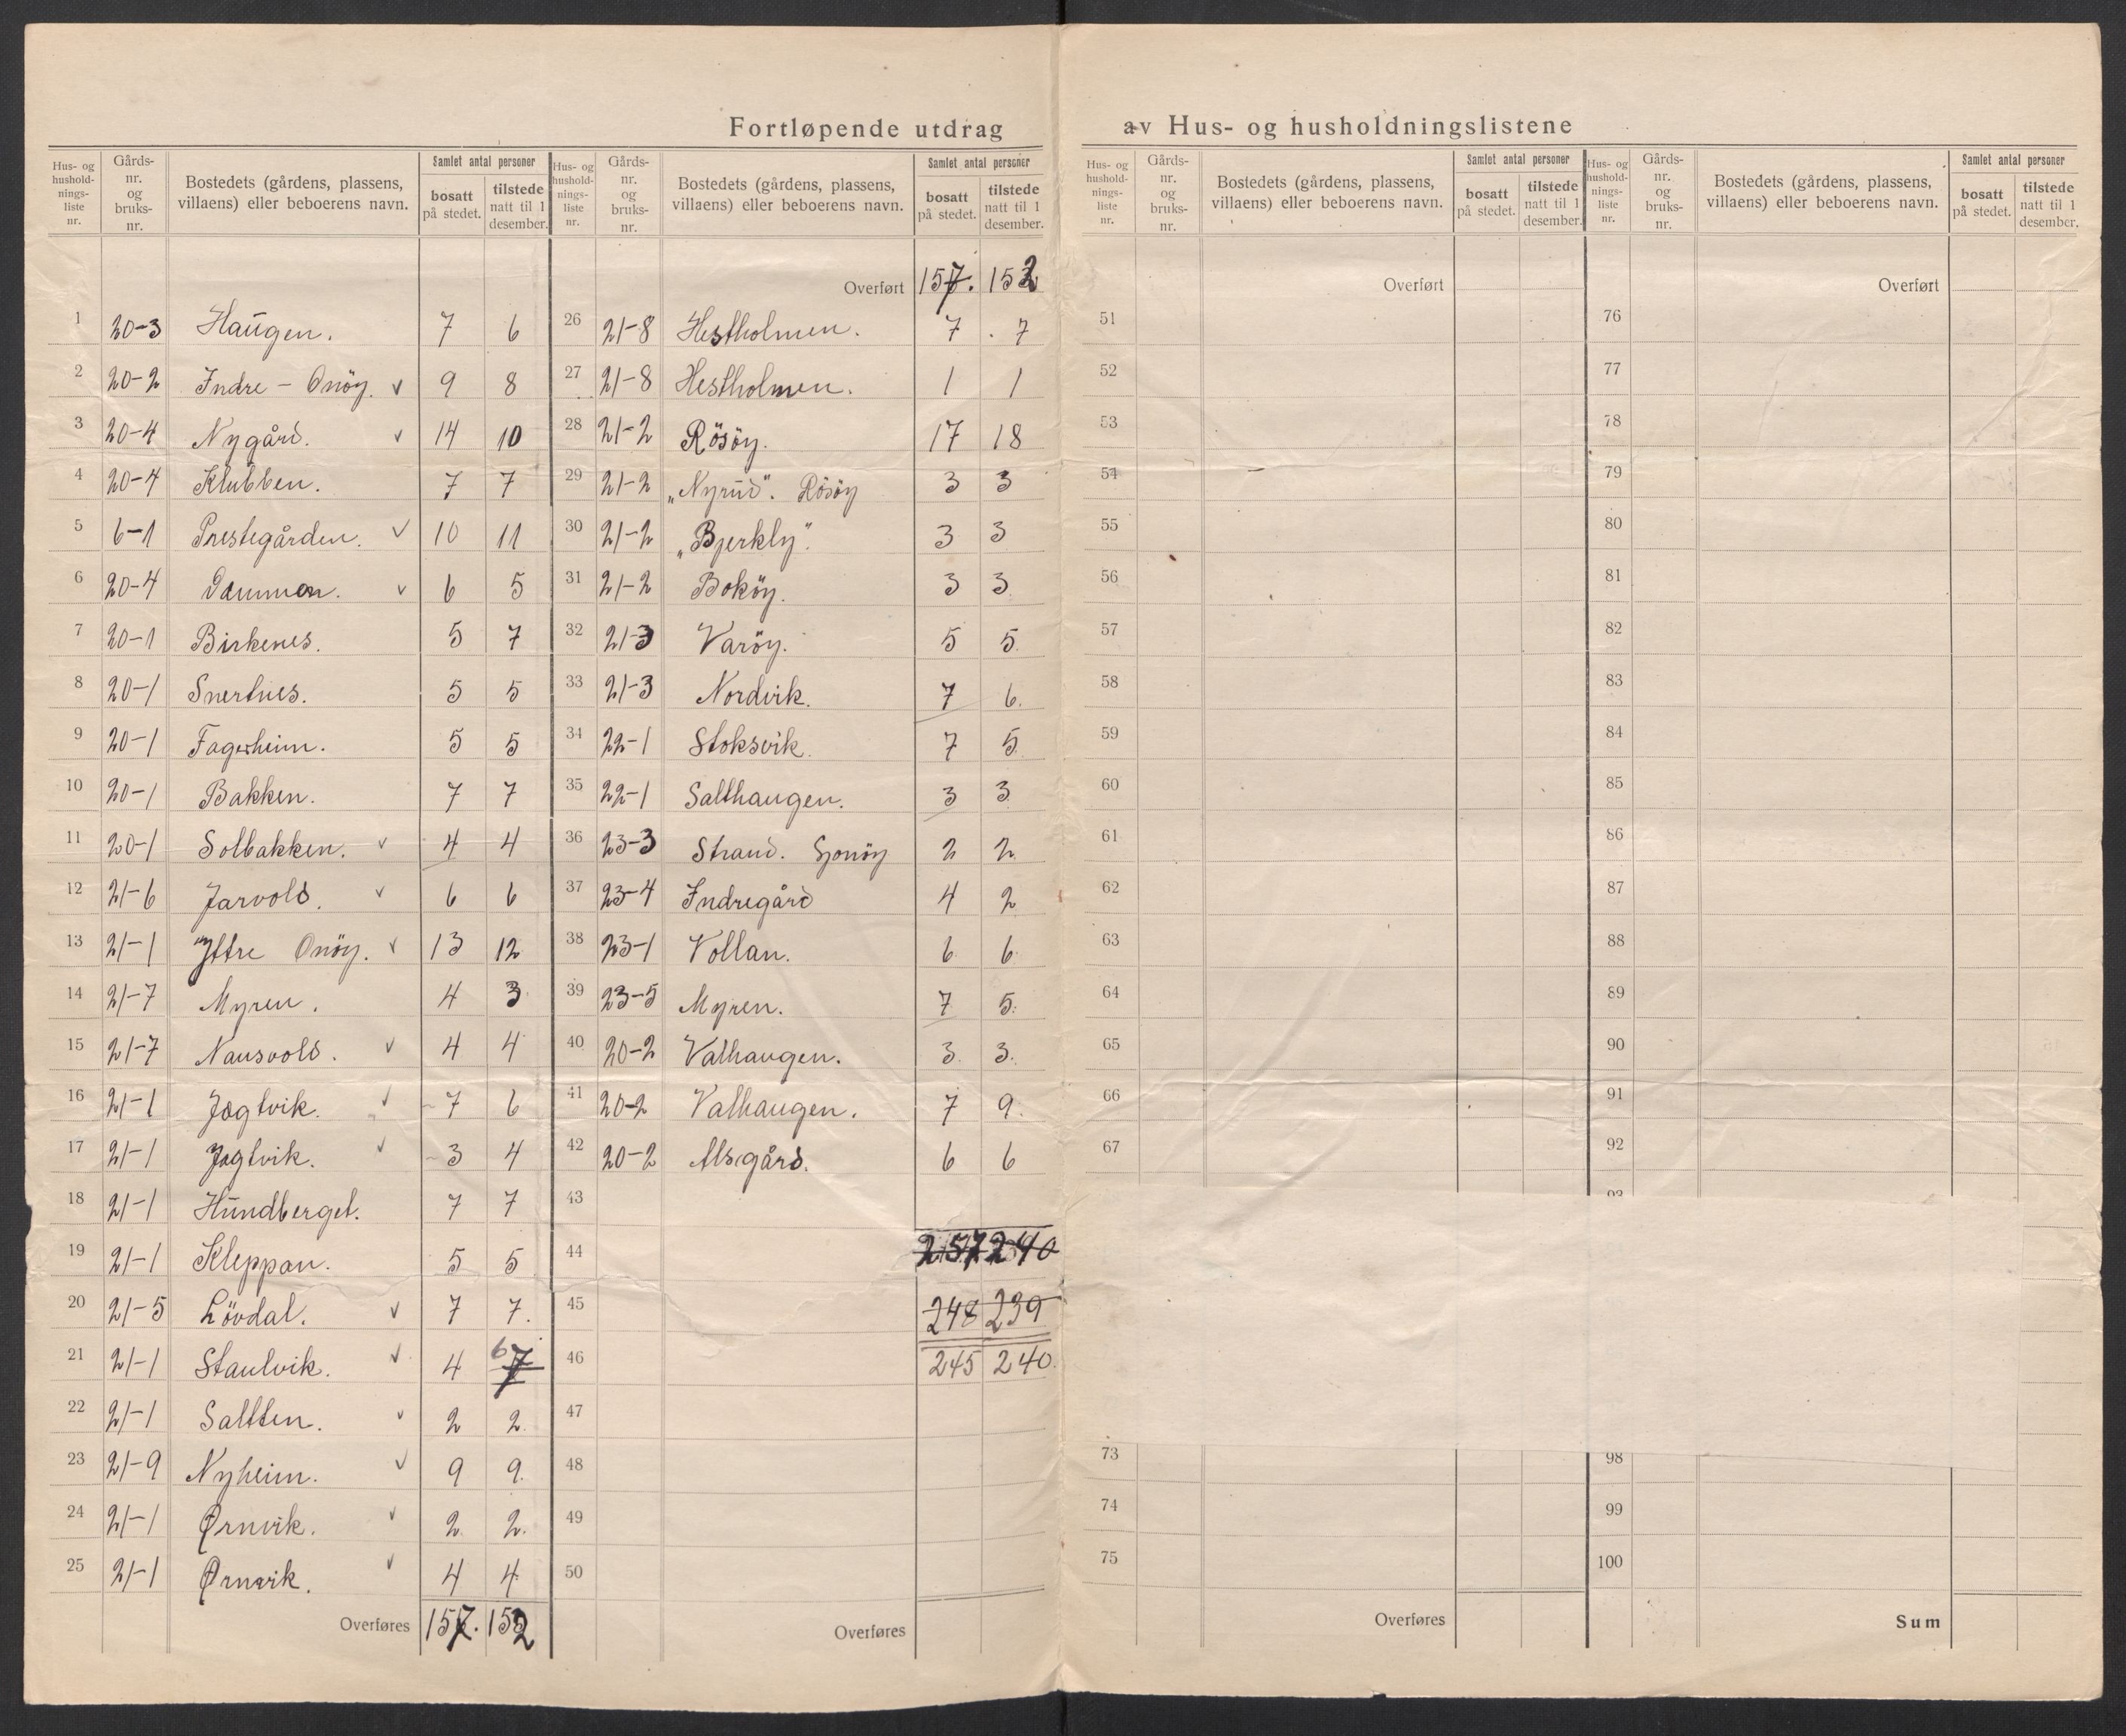 Fortløpende utdrag av Hus- og husholdningslistene
Hus- og hushold-nings-liste nr. Gårds-nr. og bruks-nr. Bostedets (gårdens, plassens, villaens) eller beboerens navn. Samlet antal personer bosatt på stedet. tilstede natt til 1 desember.
1 20-3 Haugen. 7 6
2 20-2 Indre - Onöy. v 9 8
3 20-4 Nygård. v 14 10
4 20-4 Klubben. 7 7
5 6-1 Prestegården. v 10 11
6 20-4 v 6 5
7 20-1 Birkenes. 5 7
8 20-1 Snertnes. 5 5
9 20-1 Fagerheim. 5 5
10 20-1 Bakken. 7 7
11 20-1 Solbakken. v 4 4
12 21-6 Jarvold. v 6 6
13 21-1 Yttre Onöy. v 13 12
14 21-7 Myren. 4 3
15 21-7 Nausvold. v 4 4
16 21-1 Jægtvik. v 7 6
17 21-1 Jægtvik. v 3 4
18 21-1 Hundberget. 7 7
19 21-1 Kleppan. 5 5
20 21-5 Lövdal. v 7 7.
21 21-1 Staulvik. v 4 6 7
22 21-1 Saltten. v 2 2.
23 21-9 Nyheim. v 9 9.
24 21-1 Ørnvik. v 2 2.
25 21-1 Ørnvik. v 4 4
Overføres 157. 152
Hus- og hushold-nings-liste nr. Gårds-nr. og bruks-nr. Bostedets (gårdens, plassens, villaens) eller beboerens navn. Samlet antal personer bosatt på stedet. tilstede natt til 1 desember.
Overført 157. 152
26 21-8 Hestholmen. 7 . 7
27 21-8 Hestholmen. 1 1
28 21-2 Rösöy. 17 18
29 21-2 „Nyrud". Rösöy 3 3
30 21-2 „Bjerkly". 3 3
31 21-2 Boköy. 3 3
32 21-3 Varöy. 5 5.
33 21-3 Nordvik. 7 6.
34 22-1 Stoksvik. 7 5.
35 22-1 Salthaugen. 3 3
36 23-3 Strand. Sjonöy 2 2.
37 23-4 Indregård 4 2
38 23-1 Vollan. 6 6
39 23-5 Myren. 7 5.
40 20-2 Valhaugen. 3. 3.
41 20-2 Valhaugen. 7 9.
42 20-2 Alsgård. 6 6
43
44 257 240
45 248 239
46 245 240.
47
48
49
50
Overføres
Hus- og hushold-nings-liste nr. Gårds-nr. og bruks-nr. Bostedets (gårdens, plassens, villaens) eller beboerens navn. Samlet antal personer bosatt på stedet. tilstede natt til 1 desember.
Overført
51
52
53
54
55
56
57
58
59
60
61
62
63
64
65
66
67
73
74
75
Overføres
Hus- og hushold-nings-liste nr. Gårds-nr. og bruks-nr. Bostedets (gårdens, plassens, villaens) eller beboerens navn. Samlet antal personer bosatt på stedet. tilstede natt til 1 desember.
Overført
76
77
78
79
80
81
82
83
84
85
86
87
88
89
90
91
92
93
98
99
100
Sum